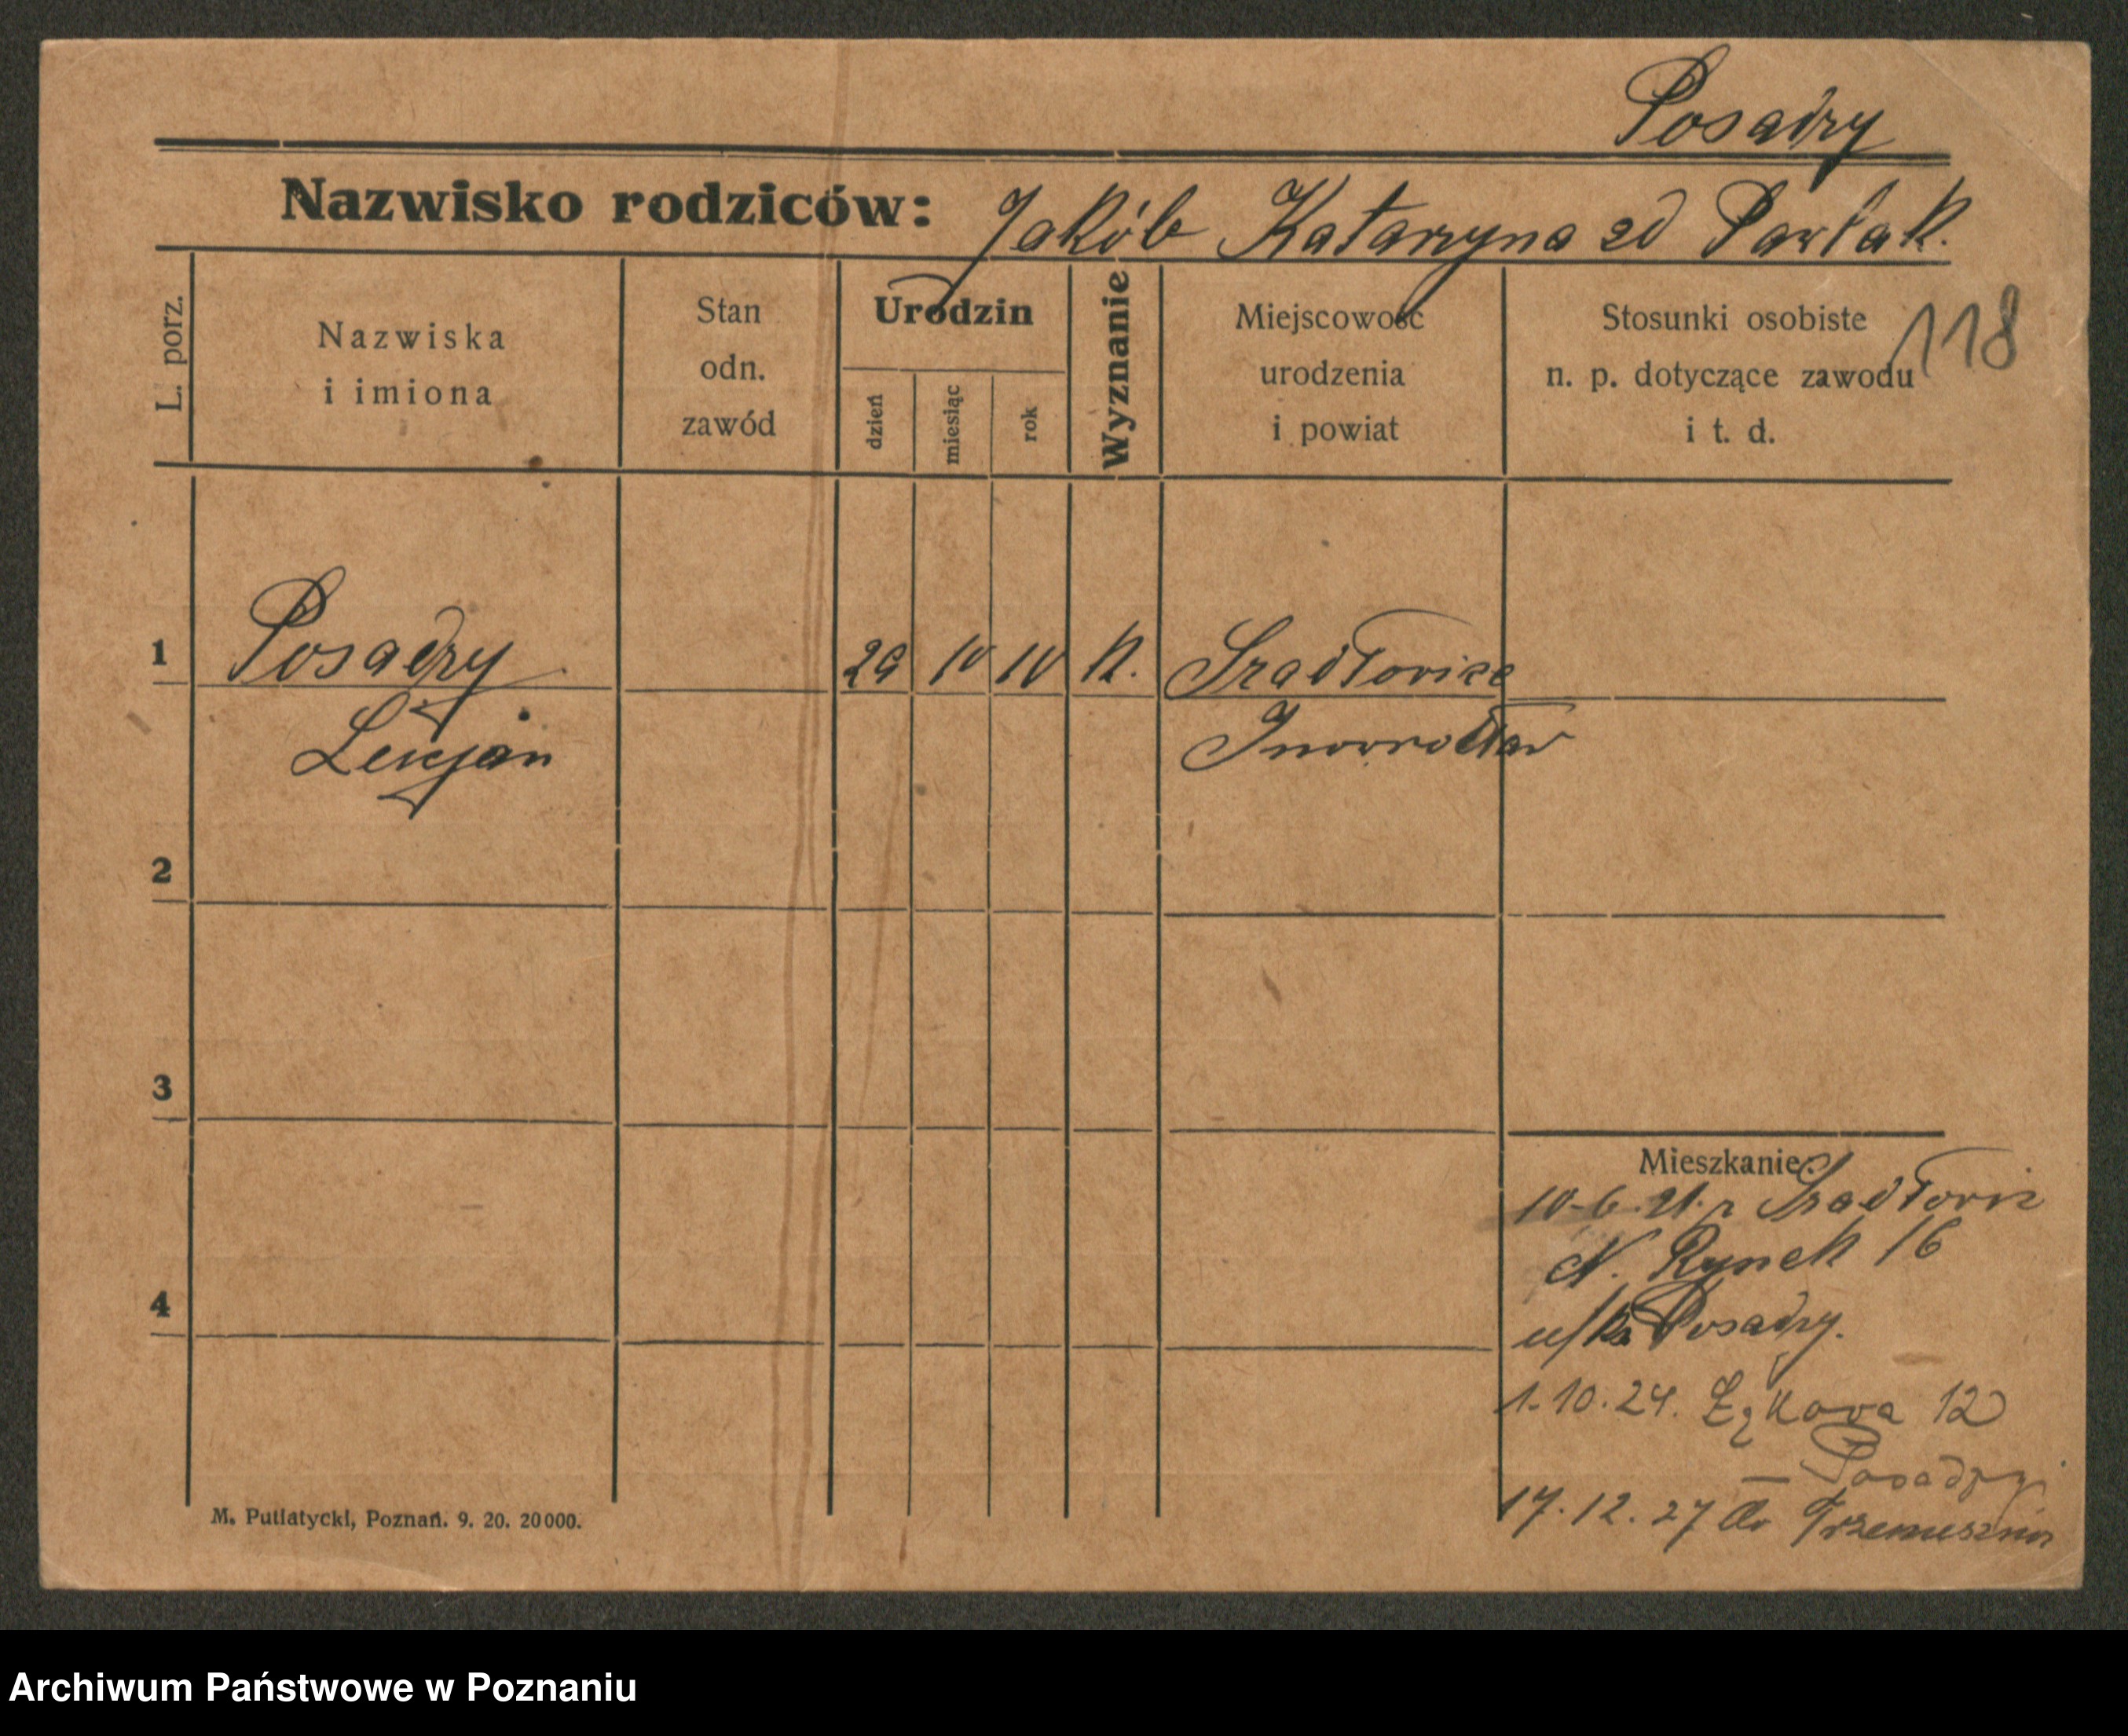 Posadzy
Nazwisko rodziców: Jakób Katarzyna zd Pawlak.
L. porz.
Nazwiska
i imiona
Stan
odn.
zawód
Urodzin
dzień
miesiąc
rok
Wyznanie
Miejscowość
urodzenia
i powiat
Stosunki osobiste
n. p. dotyczące zawodu
i t. d.
118
1
Posadzy
29 10 10 K. Szadłowice
Lucjan
Inowrocław
2
3
4
Mieszkanie:
10.6.21. z Szadłowic
N. Rynek 16
Posadzy.
1.10.24. Łąkowa 12
— Posadzy
17.12.27 do Trzemeszna
M. Putiatycki, Poznań. 9. 20. 20000.
Archiwum Państwowe w Poznaniu